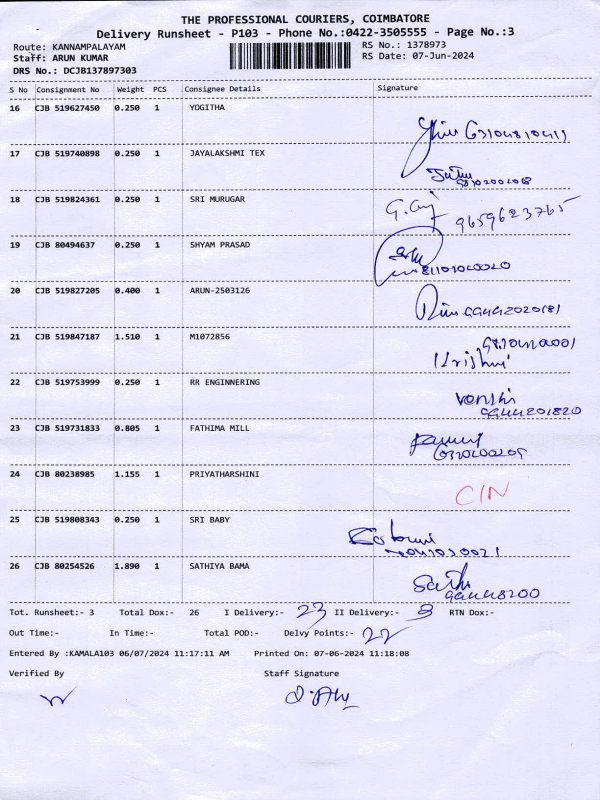 THE PROFESSIONAL COURIERS, COIMBATORE
Delivery Runsheet - P103 - Phone No.:0422-3505555 - Page No.:3
Route: KANNAMPALAYAM RS No.: 1378973
Staff: ARUN KUMAR RS Date: 07-Jun-2024
DRS No.: DCJB137897303
S No Consignment No Weight PCS Consignee Details Signature
16 CJB 519627450 0.250 1 YOGITHA
17 CJB 519740898 0.250 1 JAYALAKSHMI TEX
18 CJB 519824361 0.250 1 SRI MURUGAR
9659623765
19 CJB 80494637 0.250 1 SHYAM PRASAD
20 CJB 519827205 0.400 1 ARUN-2503126
21 CJB 519847187 1.510 1 M1072856
22 CJB 519753999 0.250 1 RR ENGINNERING
23 CJB 519731833 0.805 1 FATHIMA MILL
24 CJB 80238985 1.155 1 PRIYATHARSHINI
CIN
25 CJB 519808343 0.250 1 SRI BABY
26 CJB 80254526 1.890 1 SATHIYA BAMA
Tot. Runsheet:- 3 Total Dox:- 26 I Delivery:- 23 II Delivery:- 3 RTN Dox:-
Out Time:- In Time:- Total POD:- Delvy Points:- 22
Entered By :KAMALA103 06/07/2024 11:17:11 AM Printed On: 07-06-2024 11:18:08
Verified By Staff Signature